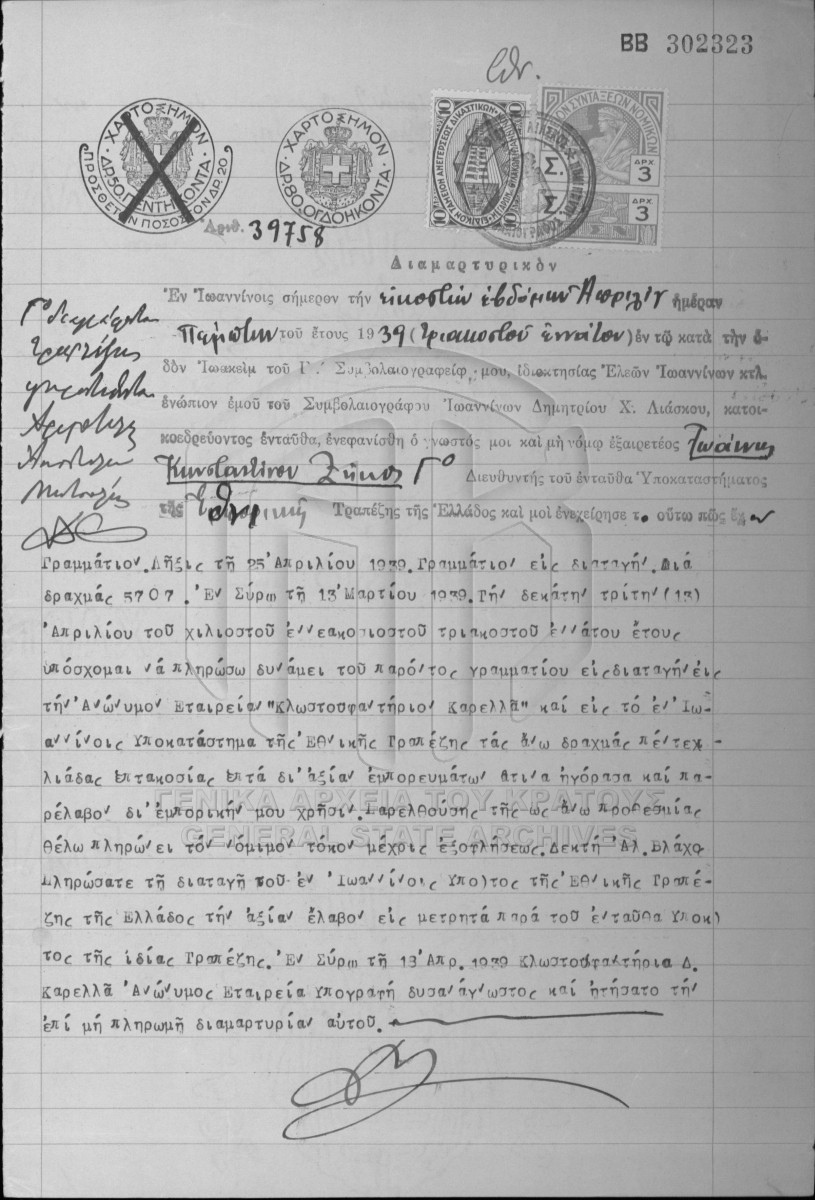 ΒΒ 302323
ΧΑΡΤΟΣΗΜΟΝ
ΔΡ.50.ΠΕΝΤΗΚΟΝΤΑ
ΠΡΟΣΘΕΤΟΝ ΠΟΣΟΣΤΟΝ ΔΡ. 20
ΧΑΡΤΟΣΗΜΟΝ
ΔΡ.80.ΟΓΔΟΗΚΟΝΤΑ
10 10
10 10
ΔΡΧ. 3
ΔΡΧ. 3
Σ.
Σ.
Ἀριθ. 39758
Διαμαρτυρικὸν
Ἐν Ἰωαννίνοις σήμερον τὴν εἰκοστὴν ἑβδόμην Ἀπριλίου ἡμέραν
Πέμπτην τοῦ ἔτους 1939 (τριακοστοῦ ἐννάτου) ἐν τῷ κατὰ τὴν ὁ-
δὸν Ἰωακεὶμ τοῦ Γ.´ Συμβολαιογραφείῳ μου, ἰδιοκτησίας Ἐλεῶν Ἰωαννίνων κτλ.
ἐνώπιον ἐμοῦ τοῦ Συμβολαιογράφου Ἰωαννίνων Δημητρίου Χ. Λιάσκου, κατοι-
κοεδρεύοντος ἐνταῦθα, ἐνεφανίσθη ὁ γνωστός μοι καὶ μὴ νόμῳ ἐξαιρετέος Ἰωάννης
Κωνσταντίνου Ζῆκος Γ° Διευθυντὴς τοῦ ἐνταῦθα Ὑποκαταστήματος
τῆς Ἐθνικῆς Τραπέζης τῆς Ἑλλάδος καὶ μοὶ ἐνεχείρησε το οὕτω πῶς ἔχον
Γραμμάτιον. Λῆξις τῇ 25 Ἀπριλίου 1939. Γραμμάτιον εἰς διαταγήν. Διά
δραχμάς 5707. Ἐν Σύρῳ τῇ 13 Μαρτίου 1939. Τήν δεκάτην τρίτην (13)
Ἀπριλίου τοῦ χιλιοστοῦ ἐννεακοσιοστοῦ τριακοστοῦ ἐννάτου ἔτους
ὑπόσχομαι νά πληρώσω δυνάμει τοῦ παρόντος γραμματίου εἰςδιαταγήνεἰς
τήν Ἀνώνυμον Εταιρείαν "Κλωστοϋφαντήριον Καρελλᾶ" καί εἰς τό ἐν Ἰω-
αννίνοις Υποκατάστημα τῆς Ἐθνικῆς Τραπέζης τάς ἄνω δραχμάς πέντεχ-
λιάδας ἑπτακοσίας ἑπτά δι' ἀξίαν ἐμπορευμάτων ἅτινα ἠγόρασα καί πα-
ρέλαβον δι' ἐμπορικήν μου χρῆσιν. Παρελθούσης τῆς ὡς ἄνω προθεσμίας
θέλω πληρώνει τόν νόμιμον τόκον μέχρις ἐξοφλήσεως. Δεκτή Αλ. Βλάχο
Πληρώσατε τῇ διαταγῇ τοῦ ἐν Ἰωαννίνοις Υπο)τος τῆς Ἐθνικῆς Τραπέ-
ζης τῆς Ελλάδος τήν ἀξίαν ἔλαβον εἰς μετρητά παρά τοῦ ἐνταῦθα Υποκ)
τος τῆς ἰδίας Τραπέζης. Ἐν Σύρῳ τῇ 13 Ἀπρ. 1939 Κλωστοϋφαντήρια Δ.
Καρελλᾶ Ἀνώνυμος Εταιρεία Υπογραφή δυσανάγνωστος καί ᾐτήσατο τήν
ἐπί μή πληρωμῇ διαμαρτυρίαν αὐτοῦ.
ΓΕΝΙΚΑ ΑΡΧΕΙΑ ΤΟΥ ΚΡΑΤΟΥΣ
GENERAL STATE ARCHIVES